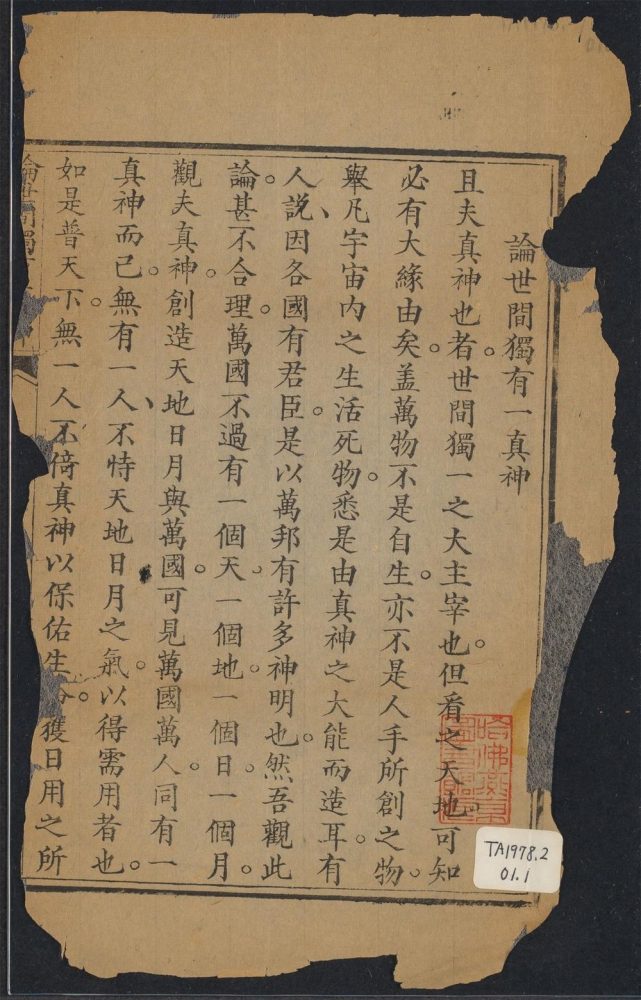 論世間獨有一真神
且夫真神也者。世間獨一之大主宰也。但看之天地可知
必有大緣由矣。盖萬物不是自生。亦不是人手所創之物。
舉凡宇宙內之生活死物。悉是由真神之大能而造耳。有
人說、因各國有君臣。是以萬邦有許多神明也。然吾觀此
論。甚不合理。萬國不過有一個天。一個地。一個日。一個月。
觀夫真神。創造天地日月與萬國。可見萬國萬人。同有一
真神而已。無有一人、不恃天地日月之氣。以得需用者也。
如是普天下。無一人不倚真神以保佑生命。獲日用之所
論世間獨有
哈佛燕京
圖書館
TA1978.2
01.1